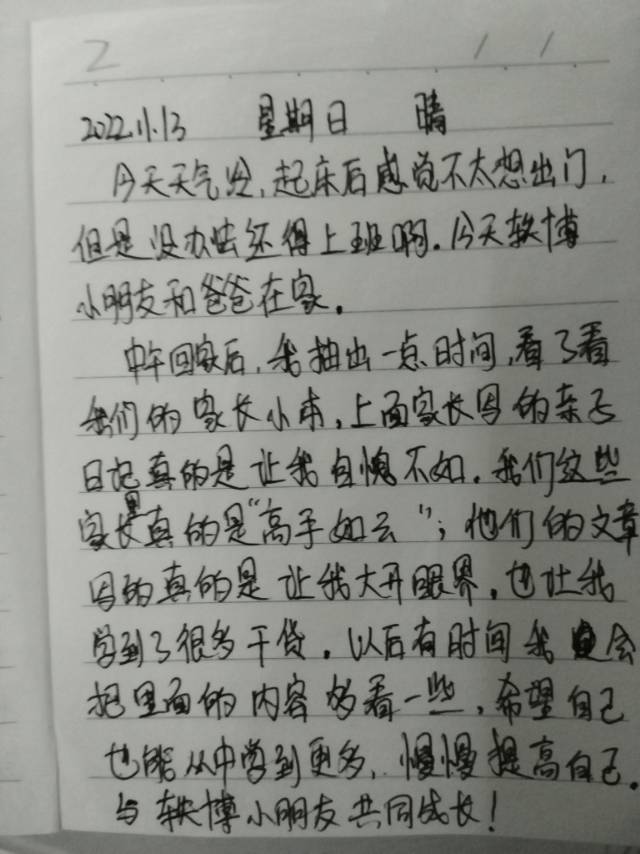 2
1 1
2022.11.13 星期日 晴
今天天气冷,起床后感觉不太想出门,
但是没办法还得上班啊.今天轶博
小朋友和爸爸在家.
中午回家后,我抽出一点时间,看了看
我们的家长小本,上面家长写的亲子
日记真的是让我自愧不如.我们这些
家长里真的是“高手如云”;他们的文章
写的真的是让我大开眼界,也让我
学到了很多干货.以后有时间我会
把里面的内容多看一些,希望自己
也能从中学到更多,慢慢提高自己.
与轶博小朋友共同成长!